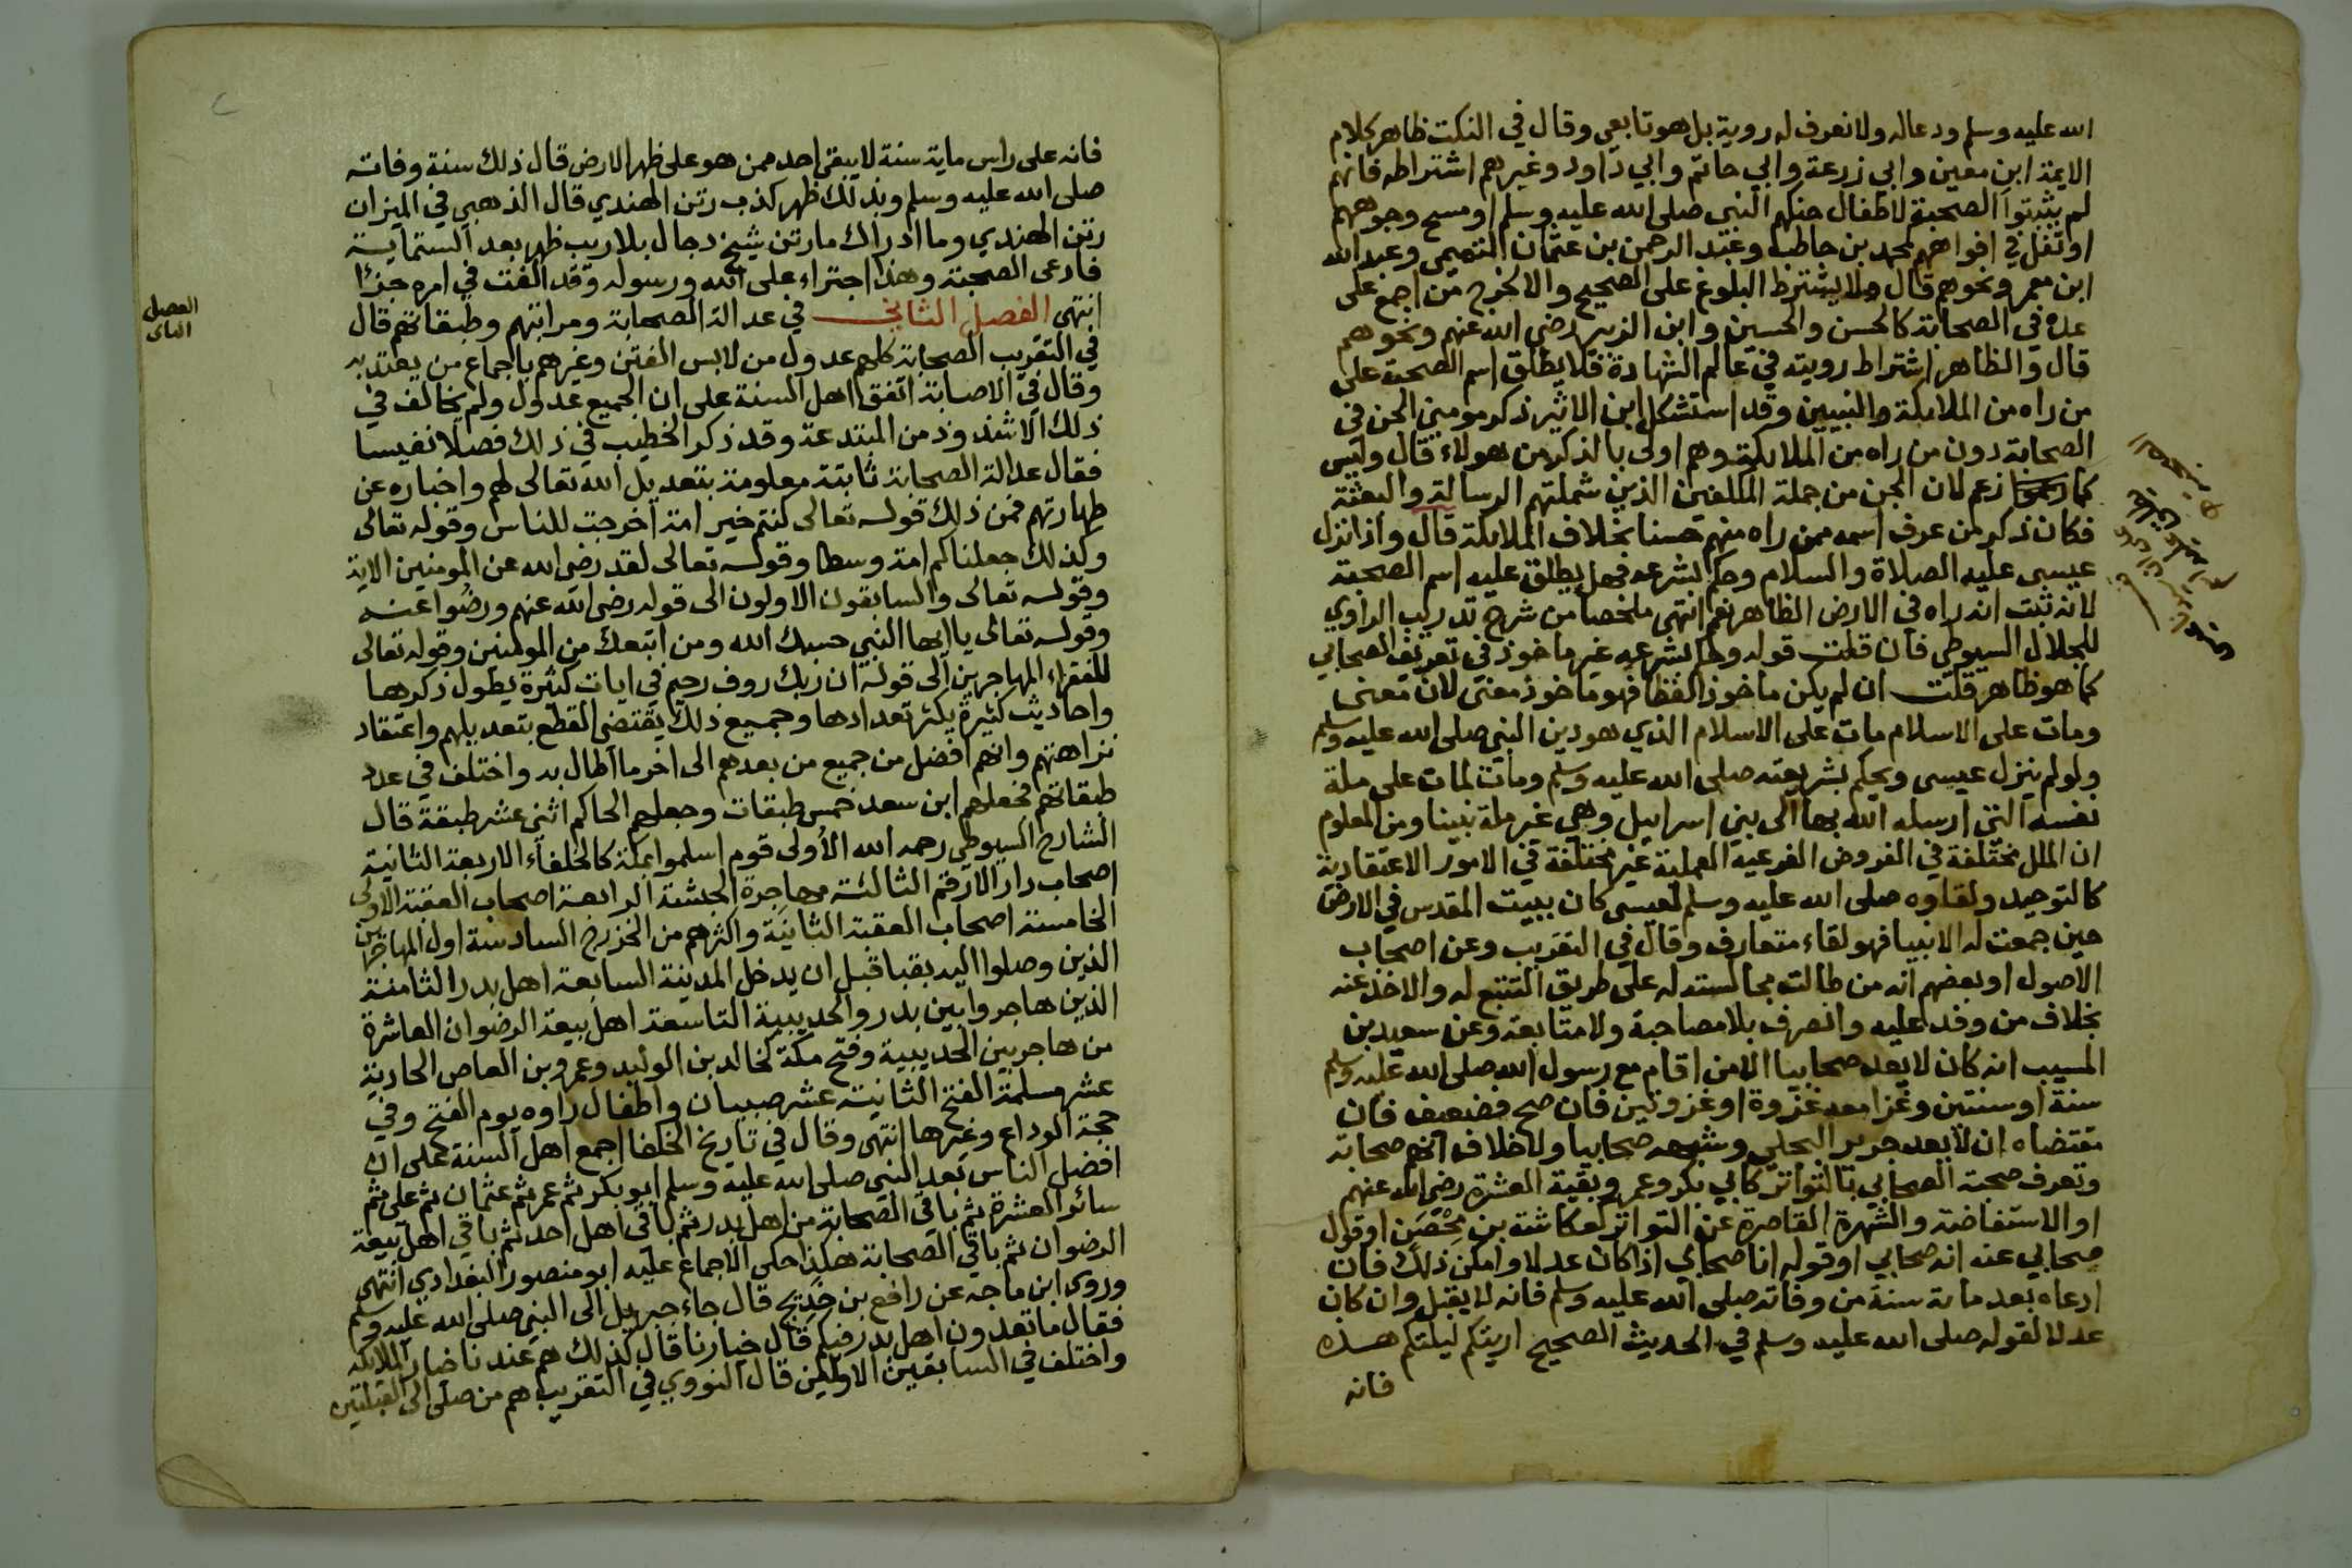 الله عليه وسلم ودعاله ولا نعرف له روية بل هو تابعي وقال في النكت ظاهر كلام
الايمة ابن معين وابي زرعة وابي حاتم وابي داود وغيرهم اشتراطه فانهم
لم يثبتوا الصحبة لاطفال حنكهم النبي صلى الله عليه وسلم او مسح وجوههم
او تفل في افواههم كمحمد بن حاطب وعبد الرحمن بن عثمان التميمي وعبد الله
ابن معمر ونحوهم قال ولا يشترط البلوغ على الصحيح والا لخرج من اجمع على
عده في الصحابة كالحسن والحسين وابن الزبير رضي الله عنهم ونحوهم
قال والظاهر اشتراط رويته في عالم الشهادة فلا يطلق اسم الصحبة على
من راه من الملايكة والنبيين وقد استشكل ابن الاثير ذكر مومني الجن في
الصحابة دون من راه من الملايكة وهم اولى بالذكر من هولاء قال وليس
كما زعم لان الجن من جملة المكلفين الذين شملتهم الرسالة والبعثة
فكان ذكر من عرف اسمه ممن راه منهم حسنا بخلاف الملايكة قال واذا نزل
عيسى عليه الصلاة والسلام وحكم بشرعه فهل يطلق عليه اسم الصحبة
لانه ثبت انه راه في الارض الظاهر نعم انتهى ملخصا من شرح تدريب الراوي
للجلال السيوطي فان قلت قوله وحكم بشرعه غير ماخوذ في تعريف الصحابي
كما هو ظاهر قلت ان لم يكن ماخوذ الفظا فهو ماخوذ معنى لان معنى
ومات على الاسلام مات على الاسلام الذي هو دين النبي صلى الله عليه وسلم
ولو لم ينزل عيسى ويحكم بشريعته صلى الله عليه وسلم ومات لمات على ملة
نفسه التي ارسله الله بها الى بني اسراييل وهي غير ملة نبينا ومن المعلوم
ان الملل مختلفة في الفروض الفرعية العملية غير مختلفة في الامور الاعتقادية
كالتوحيد ولقاوه صلى الله عليه وسلم لعيسى كان ببيت المقدس في الارض
حين جمعت له الانبيا فهو لقاء متعارف وقال في التقريب وعن اصحاب
الاصول او بعضهم انه من طالت مجالسته له على طريق التتبع له والاخذ عنه
بخلاف من وفد عليه وانصرف بلا مصاحبة ولا متابعة وعن سعيد بن
المسيب انه كان لا يعد صحابيا الا من اقام مع رسول الله صلى الله عليه وسلم
سنة او سنتين وغزا معه غزوة او غزوتين فان صح فضعيف فان
مقتضاه ان لا يعد جرير البجلي وشبهه صحابيا ولا خلاف انهم صحابة
وتعرف صحبة الصحابي بالتواتر كابي بكر وعمر وبقية العشرة رضي الله عنهم
او الاستفاضة والشهرة القاصرة عن التواتر كعكاشة بن محصن او قول
صحابي عنه انه صحابي او قوله انا صحابي اذا كان عدلا وامكن ذلك فان
ادعاه بعد ماية سنة من وفاته صلى الله عليه وسلم فانه لا يقبل وان كان
عدلا لقوله صلى الله عليه وسلم في الحديث الصحيح اريتكم ليلتكم هذه
فانه
فانه على راس ماية سنة لا يبقى احد ممن هو على ظهر الارض قال ذلك سنة وفاته
صلى الله عليه وسلم وبذلك ظهر كذب رتن الهندي قال الذهبي في الميزان
رتن الهندي وما ادراك ما رتن شيخ دجال بلا ريب ظهر بعد الستماية
فادعى الصحبة وهذا اجتراء على الله ورسوله وقد الفت في امره جزئا
انتهى الفصل الثاني في عدالة الصحابة ومراتبهم وطبقاتهم قال
الفصل
الثانى
في التقريب الصحابة كلهم عدول من لابس الفتن وغيرهم باجماع من يعتد به
وقال في الاصابة اتفق اهل السنة على ان الجميع عدول ولم يخالف في
ذلك الا شذوذ من المبتدعة وقد ذكر الخطيب في ذلك فصلا نفيسا
فقال عدالة الصحابة ثابتة معلومة بتعديل الله تعالى لهم واخباره عن
طهارتهم فمن ذلك قوله تعالى كنتم خير امة اخرجت للناس وقوله تعالى
وكذلك جعلناكم امة وسطا وقوله تعالى لقد رضي الله عن المومنين الاية
وقوله تعالى والسابقون الاولون الى قوله رضي الله عنهم ورضوا عنه
وقوله تعالى يا ايها النبي حسبك الله ومن اتبعك من المومنين وقوله تعالى
للفقراء المهاجرين الى قوله ان ربك روف رحيم في ايات كثيرة يطول ذكرها
واحاديث كثيرة يكثر تعدادها وجميع ذلك يقتضي القطع بتعديلهم واعتقاد
نزاهتهم وانهم افضل من جميع من بعدهم الى اخر ما اطال به واختلف في عدد
طبقاتهم فجعلهم ابن سعد خمس طبقات وجعلهم الحاكم اثني عشر طبقة قال
الشارح السيوطي رحمه الله الأولى قوم اسلموا بمكة كالخلفاء الاربعة الثانية
اصحاب دار الارقم الثالثة مهاجرة الحبشة الرابعة اصحاب العقبة الاولى
الخامسة اصحاب العقبة الثانية واكثرهم من الخزرج السادسة اول المهاجرين
الذين وصلوا اليه بقبا قبل ان يدخل المدينة السابعة اهل بدر الثامنة
الذين هاجروا بين بدر والحديبية التاسعة اهل بيعة الرضوان العاشرة
من هاجر بين الحديبية وفتح مكة كخالد بن الوليد وعمرو بن العاص الحادية
عشر مسلمة الفتح الثانية عشر صبيان واطفال راوه يوم الفتح وفي
حجة الوداع وغيرها انتهى وقال في تاريخ الخلفا اجمع اهل السنة على ان
افضل الناس بعد النبي صلى الله عليه وسلم ابو بكر ثم عمر ثم عثمان ثم على ثم
سائر العشرة ثم باقي الصحابة من اهل بدر ثم باقي اهل احد ثم باقي اهل بيعة
الرضوان ثم باقي الصحابة هكذا حكى الاجماع عليه ابو منصور البغدادي انتهى
وروى ابن ماجه عن رافع بن خديج قال جاء جبريل الى النبي صلى الله عليه وسلم
فقال ما تعدون اهل بدر فيكم قال خيارنا قال كذلك هم عندنا خيار الملايكة
واختلف في السابقين الاولين قال النووي في التقريب هم من صلى الى القبلتين